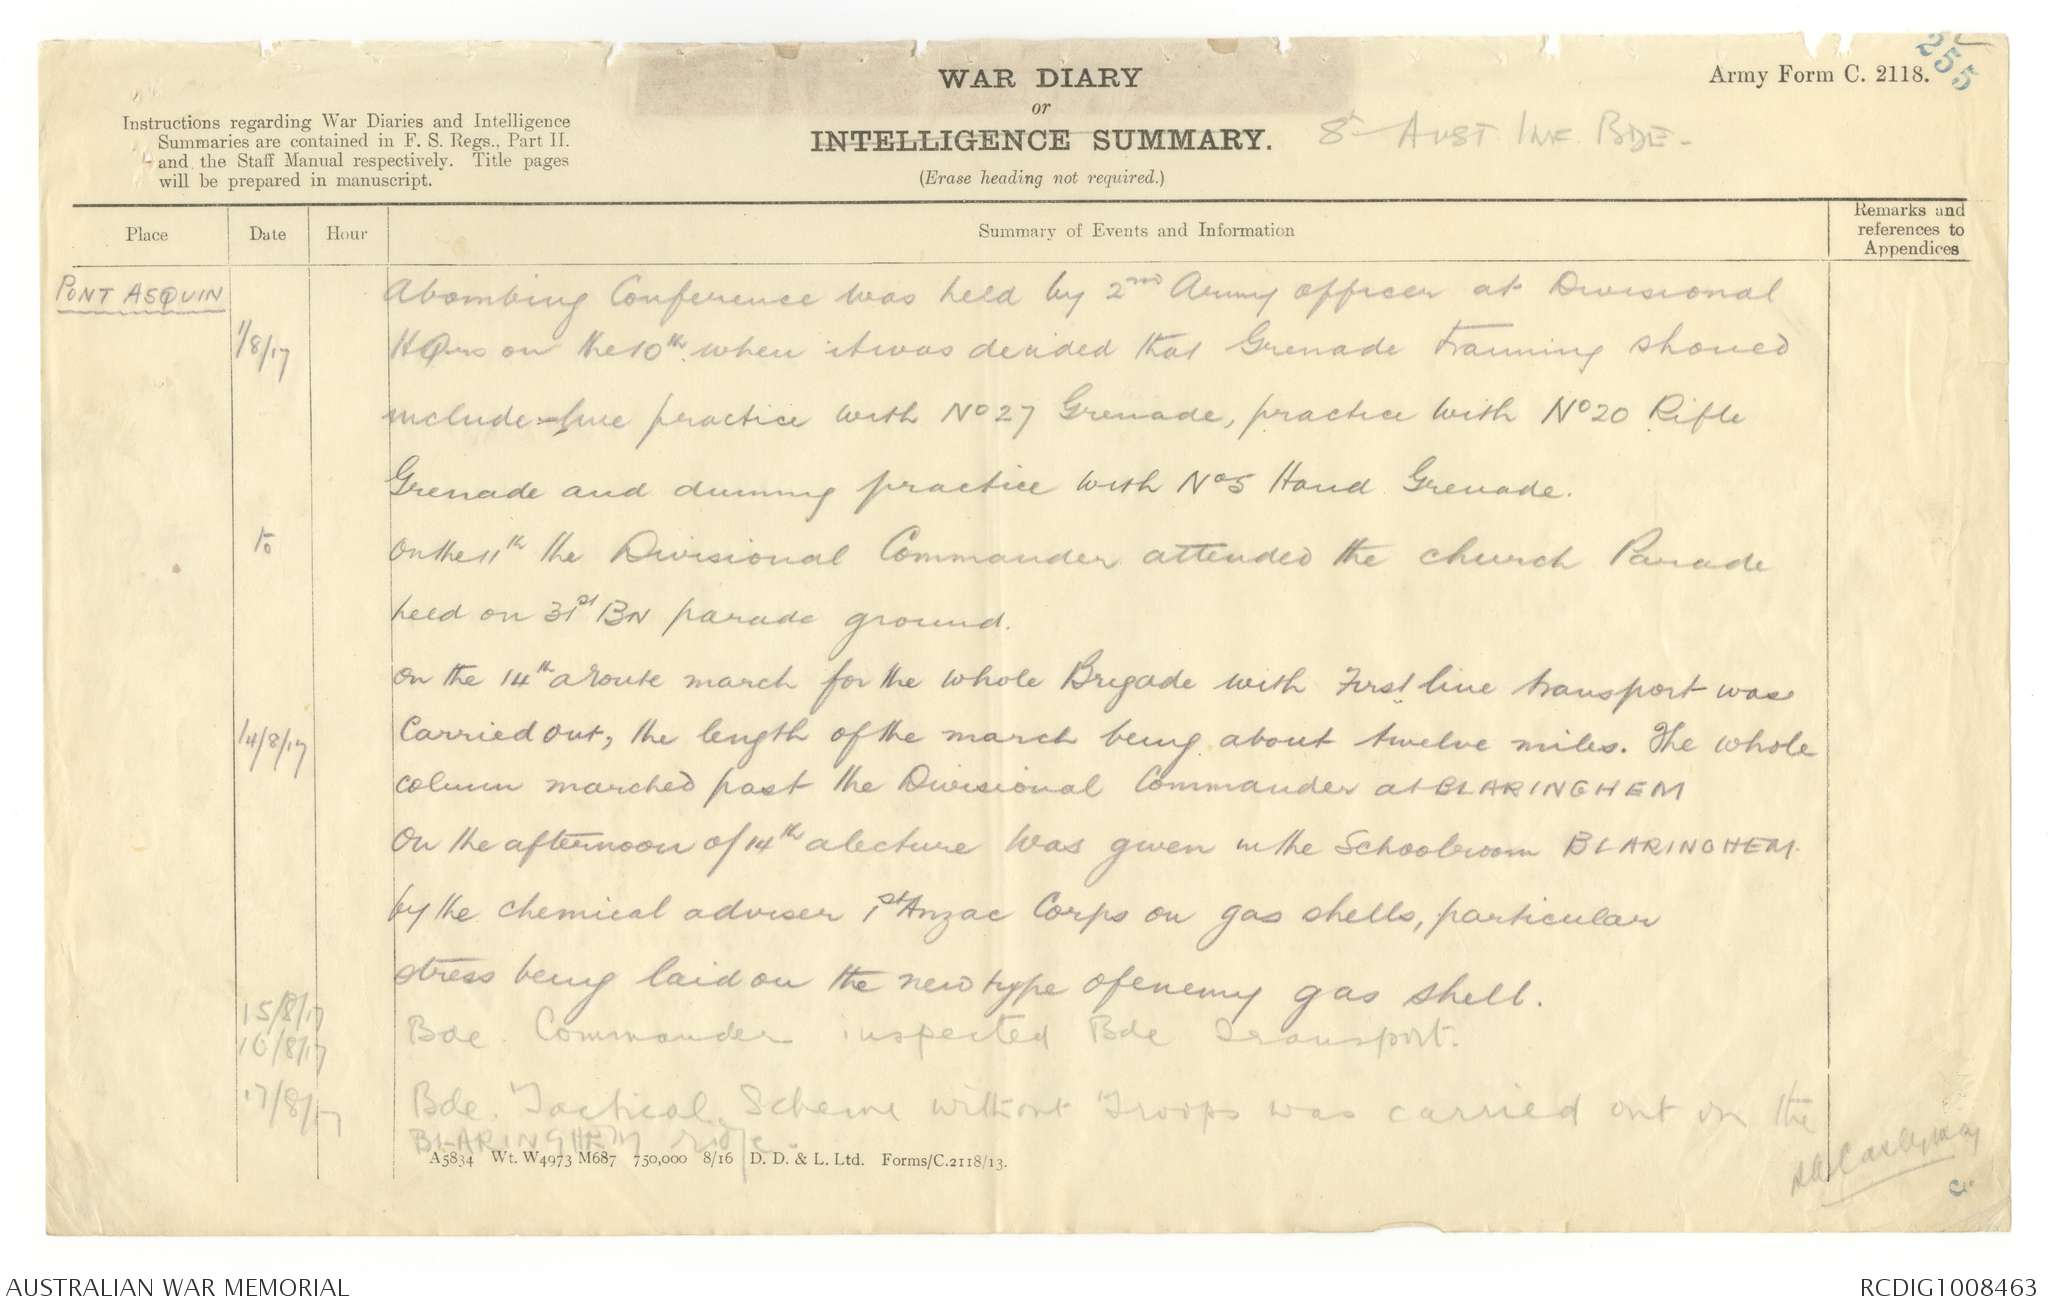 WAR DIARY
or
INTELLIGENCE SUMMARY.
(Erase heading not required.)
Army Form C. 2118.
255
8th Aust. Inf. Bde.
Instructions regarding War Diaries and Intelligence
Summaries are contained in F. S. Regs., Part II.
and the Staff Manual respectively. Title pages
will be prepared in manuscript.
Place Date Hour Summary of Events and Information Remarks and references to Appendices
PONT ASQUIN
A bombing Conference was held by 2nd Army officer at Divisional
1/8/17 HQrs on the 10th when it was decided that Grenade training should
include live practice with No 27 Grenade, practice with No 20 Rifle
Grenade and dummy practice with No 5 Hand Grenade.
to On the 11th the Divisional Commander attended the church Parade
held on 31st BN parade ground.
On the 14th a route march for the whole Brigade with First line transport was
14/8/17 Carried out, the length of the march being about twelve miles. The whole
column marched past the Divisional Commander at BLARINGHEM
On the afternoon of 14th a lecture was given in the Schoolroom BLARINGHEM.
by the chemical adviser 1st Anzac Corps on gas shells, particular
stress being laid on the new type of enemy gas shell.
15/8/17 Bde Commander inspected Bde Transport.
16/8/17
17/8/17 Bde. Tactical Scheme without Troops was carried out on the
BLARINGHEM ridge.
A5834 Wt. W4973 M687 750,000 8/16 D. D. & L. Ltd. Forms/C.2118/13.
AUSTRALIAN WAR MEMORIAL
RCDIG1008463